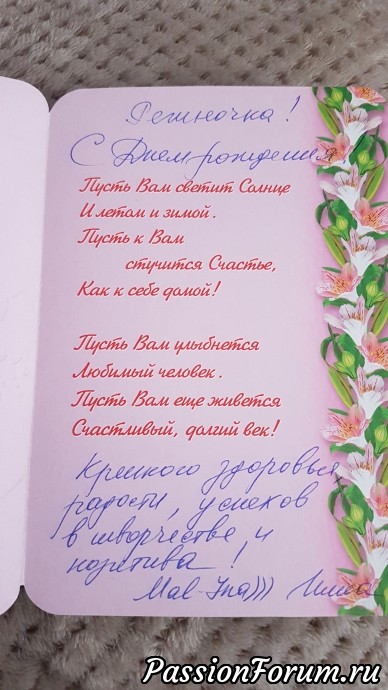 Региночка!
С Днем рождения!
Пусть Вам светит Солнце
И летом и зимой.
Пусть к Вам
стучится Счастье,
Как к себе домой!
Пусть Вам улыбнется
Любимый человек.
Пусть Вам еще живется
Счастливый, долгий век!
Крепкого здоровья,
радости, успехов
в творчестве и
позитива!
Mal-Ina)))
PassionForum.ru